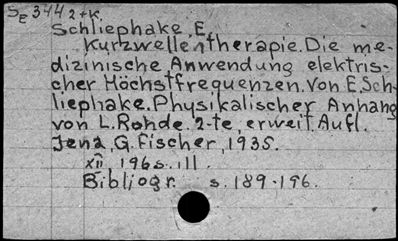 SE 344 2+K.
Schliephake, E.
Kurzwellentherapie. Die me-
dizinische Anwendung elektris-
cher Höchstfrequenzen. Von E. Sch-
liephake. Physikalischer Anhang
von L. Rohde. 2-te, erweit. Aufl.
Jena, G. Fischer, 1935.
XII, 196 s. ill.
Bibliogr. s. 189-196.